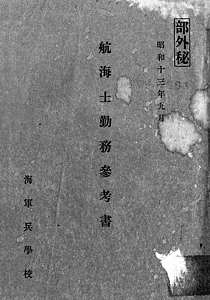 部外秘
昭和十三年九月
航海士勤務參考書
海軍兵學校